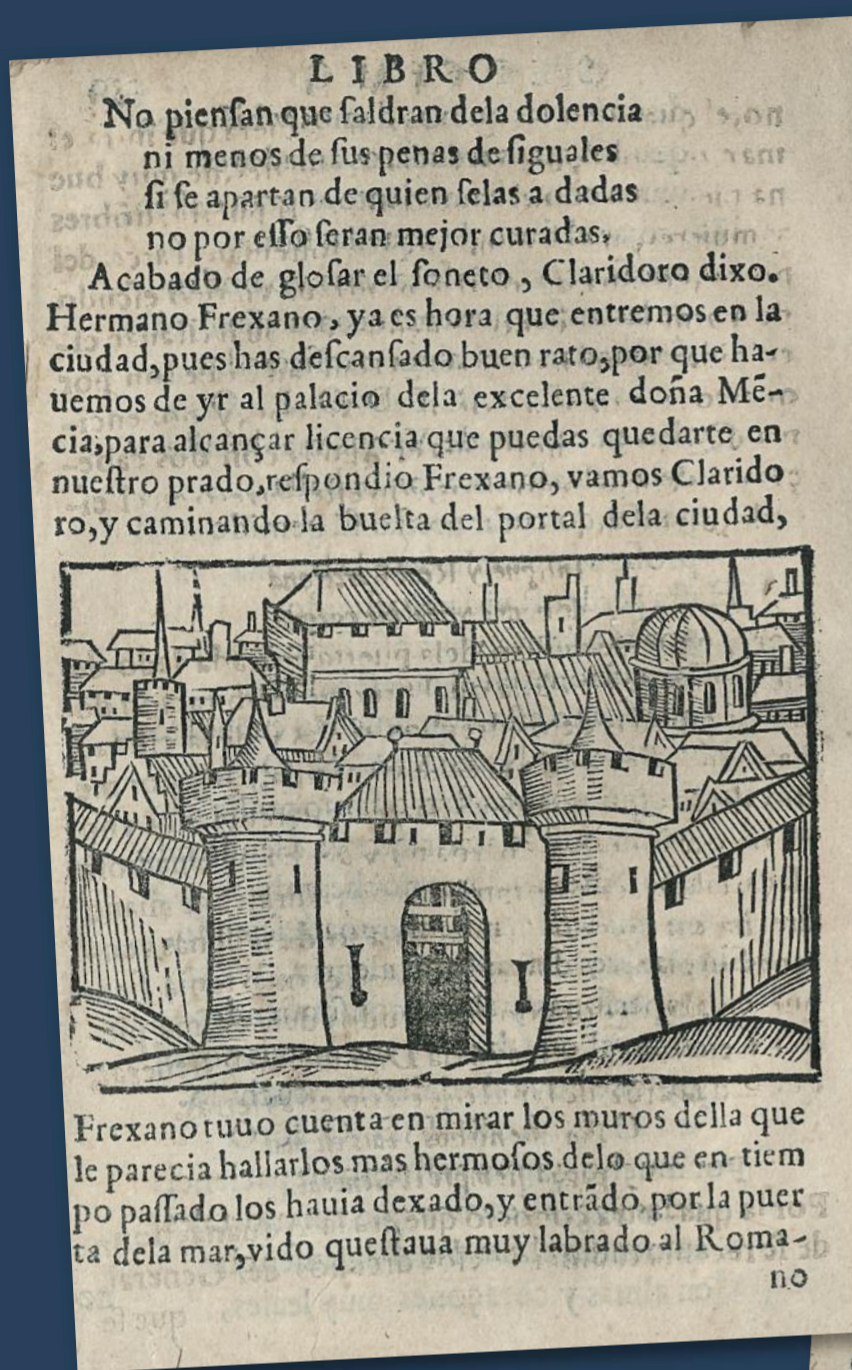 LIBRO
No pienſan que ſaldran dela dolencia
ni menos de ſus penas deſiguales
ſi ſe apartan de quien ſelas a dadas
no por eſſo ſeran mejor curadas.
Acabado de gloſar el ſoneto, Claridoro dixo.
Hermano Frexano, ya es hora que entremos en la
ciudad, pues has deſcanſado buen rato, por que ha-
uemos de yr al palacio dela excelente doña Mē-
cia, para alcançar licencia que puedas quedarte en
nueſtro prado, reſpondio Frexano, vamos Clarido
ro, y caminando la buelta del portal dela ciudad,
Frexano tuuo cuenta en mirar los muros della que
le parecia hallarlos mas hermoſos delo que en tiem
po paſſado los hauia dexado, y entrādo por la puer
ta dela mar, vido queſtaua muy labrado al Roma-
no